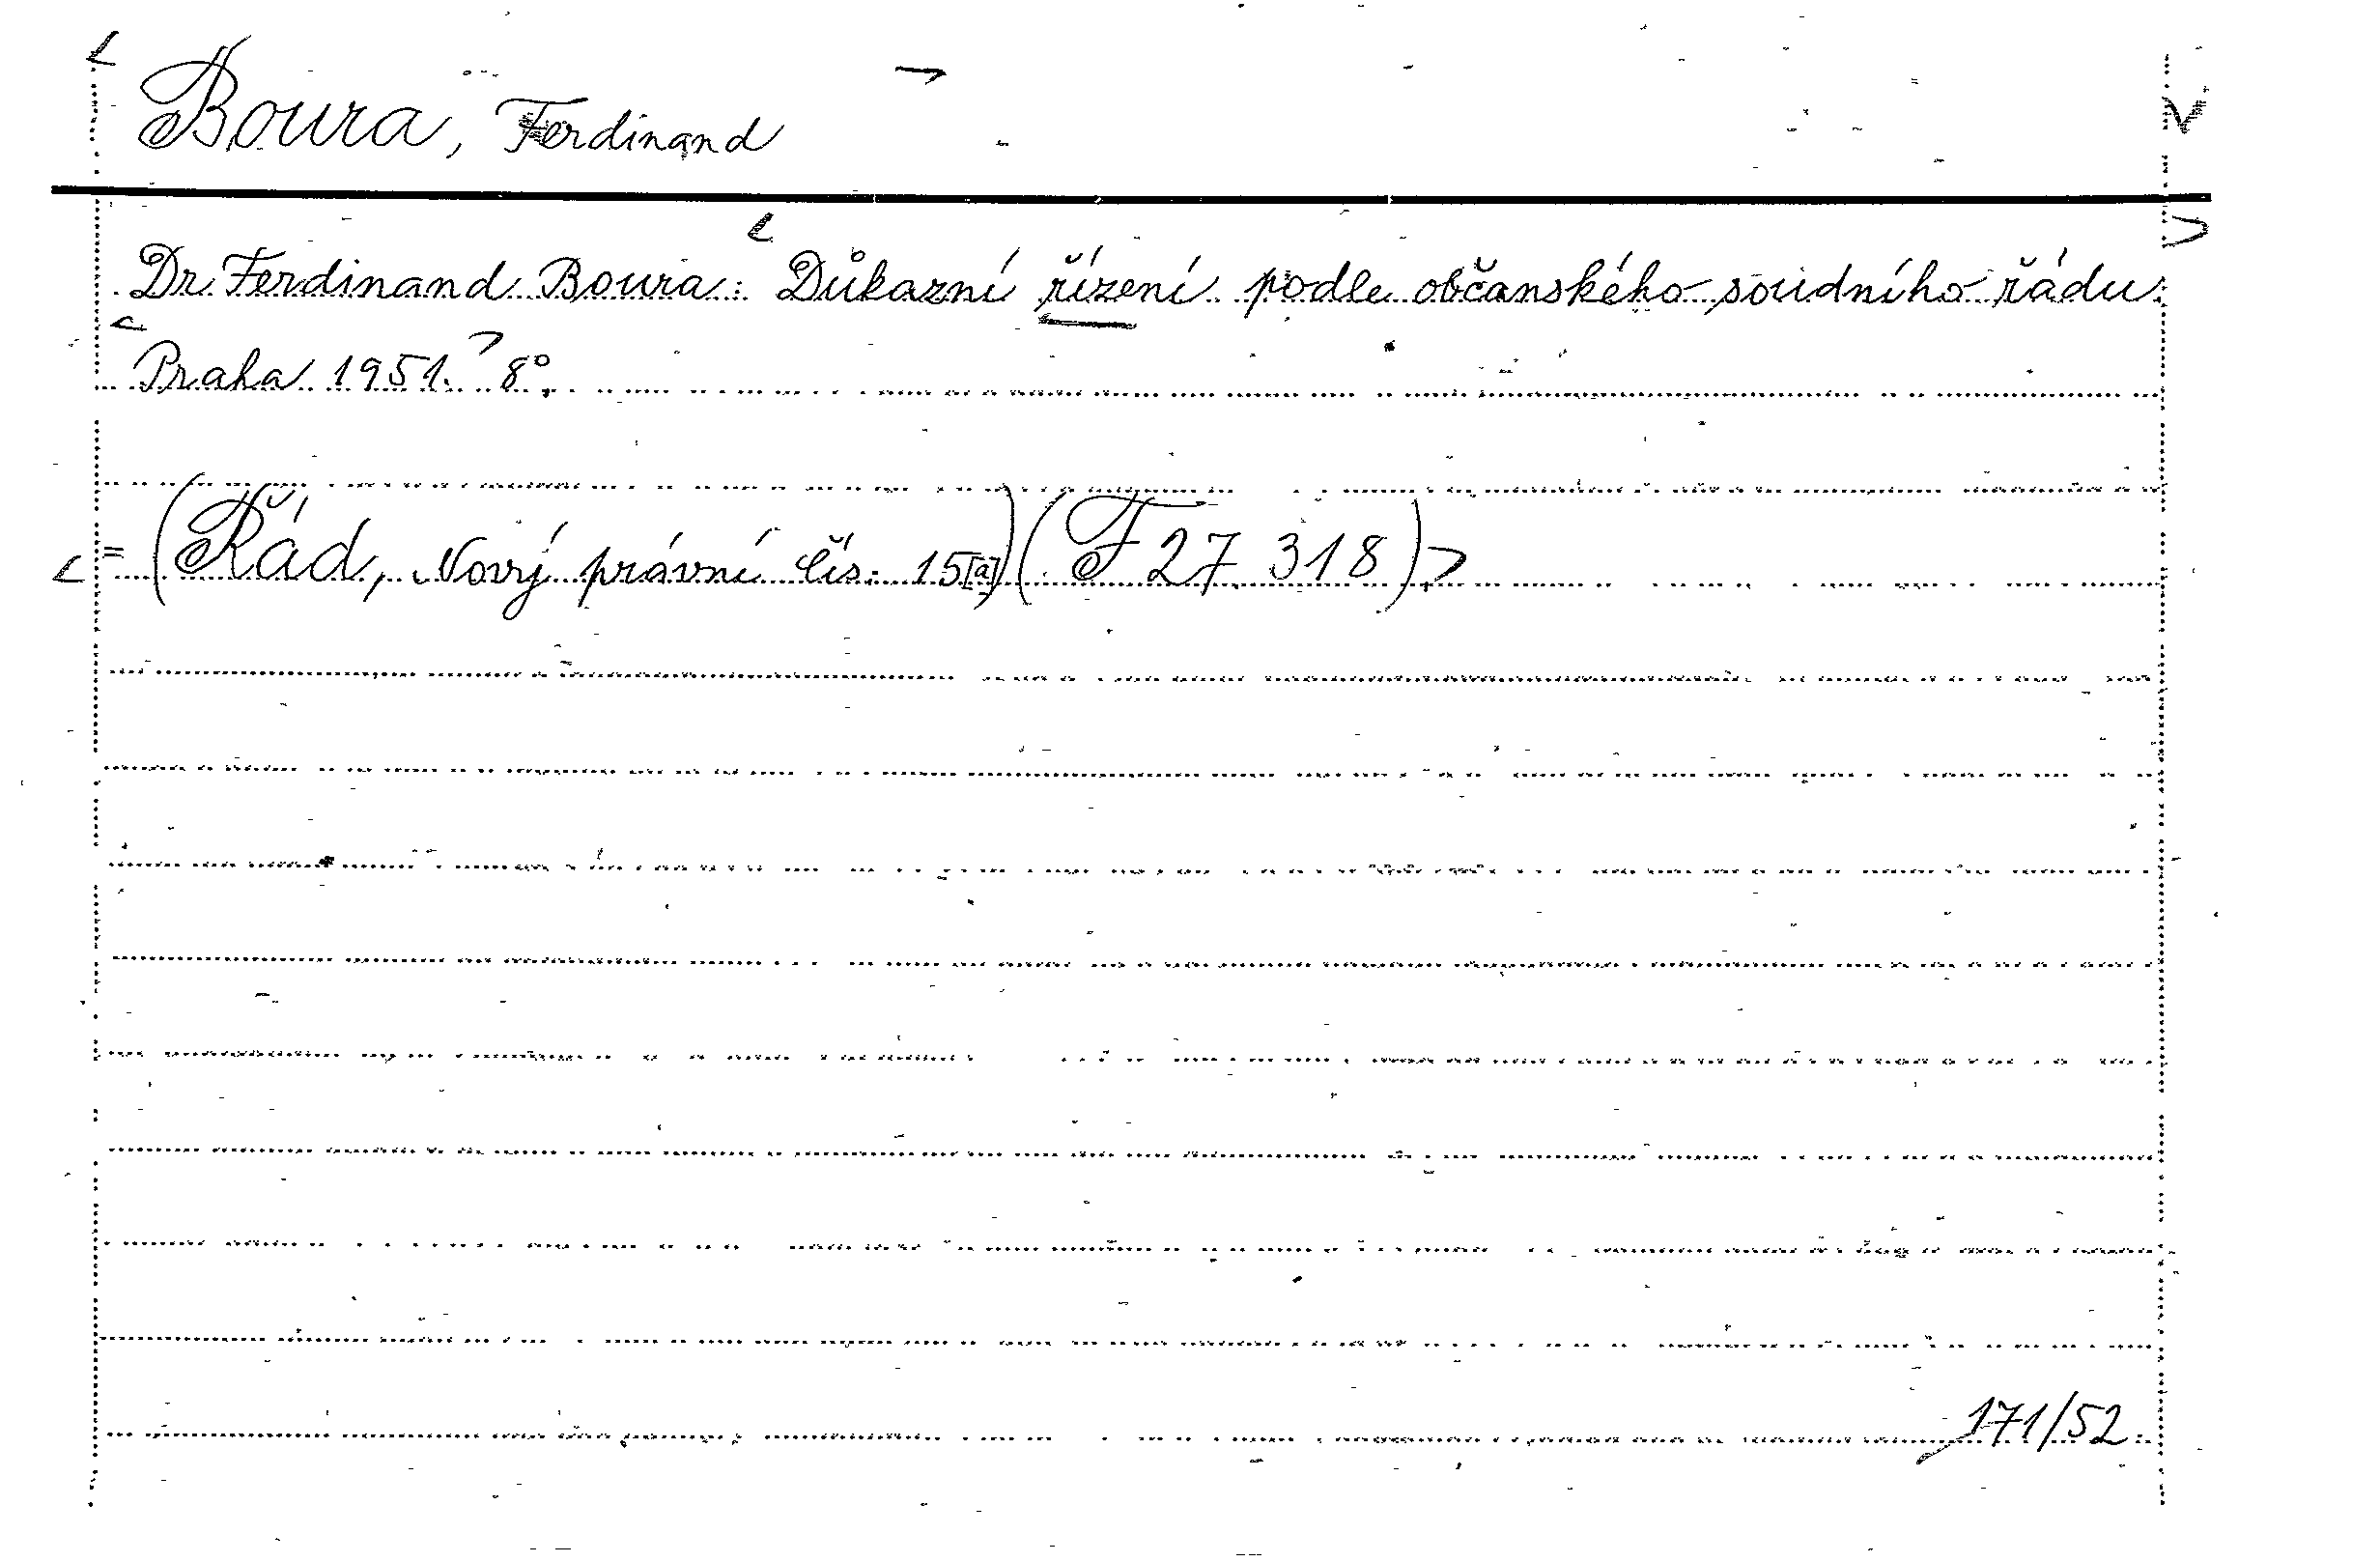 Boura, Ferdinand
Dr. Ferdinand Boura: Důkazní řízení podle občanského soudního řádu.
Praha 1951. 8°.
= (Řád, Nový právní čís. 15[a]) (F 27.318)
171/52.